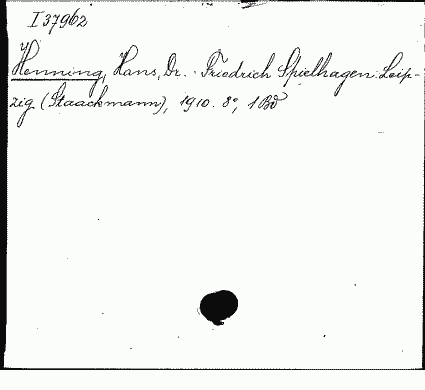 I 37962
Henning, Hans, Dr. Friedrich Spielhagen. Leip-
zig (Staackmann), 1910. 8°, 1 Bd